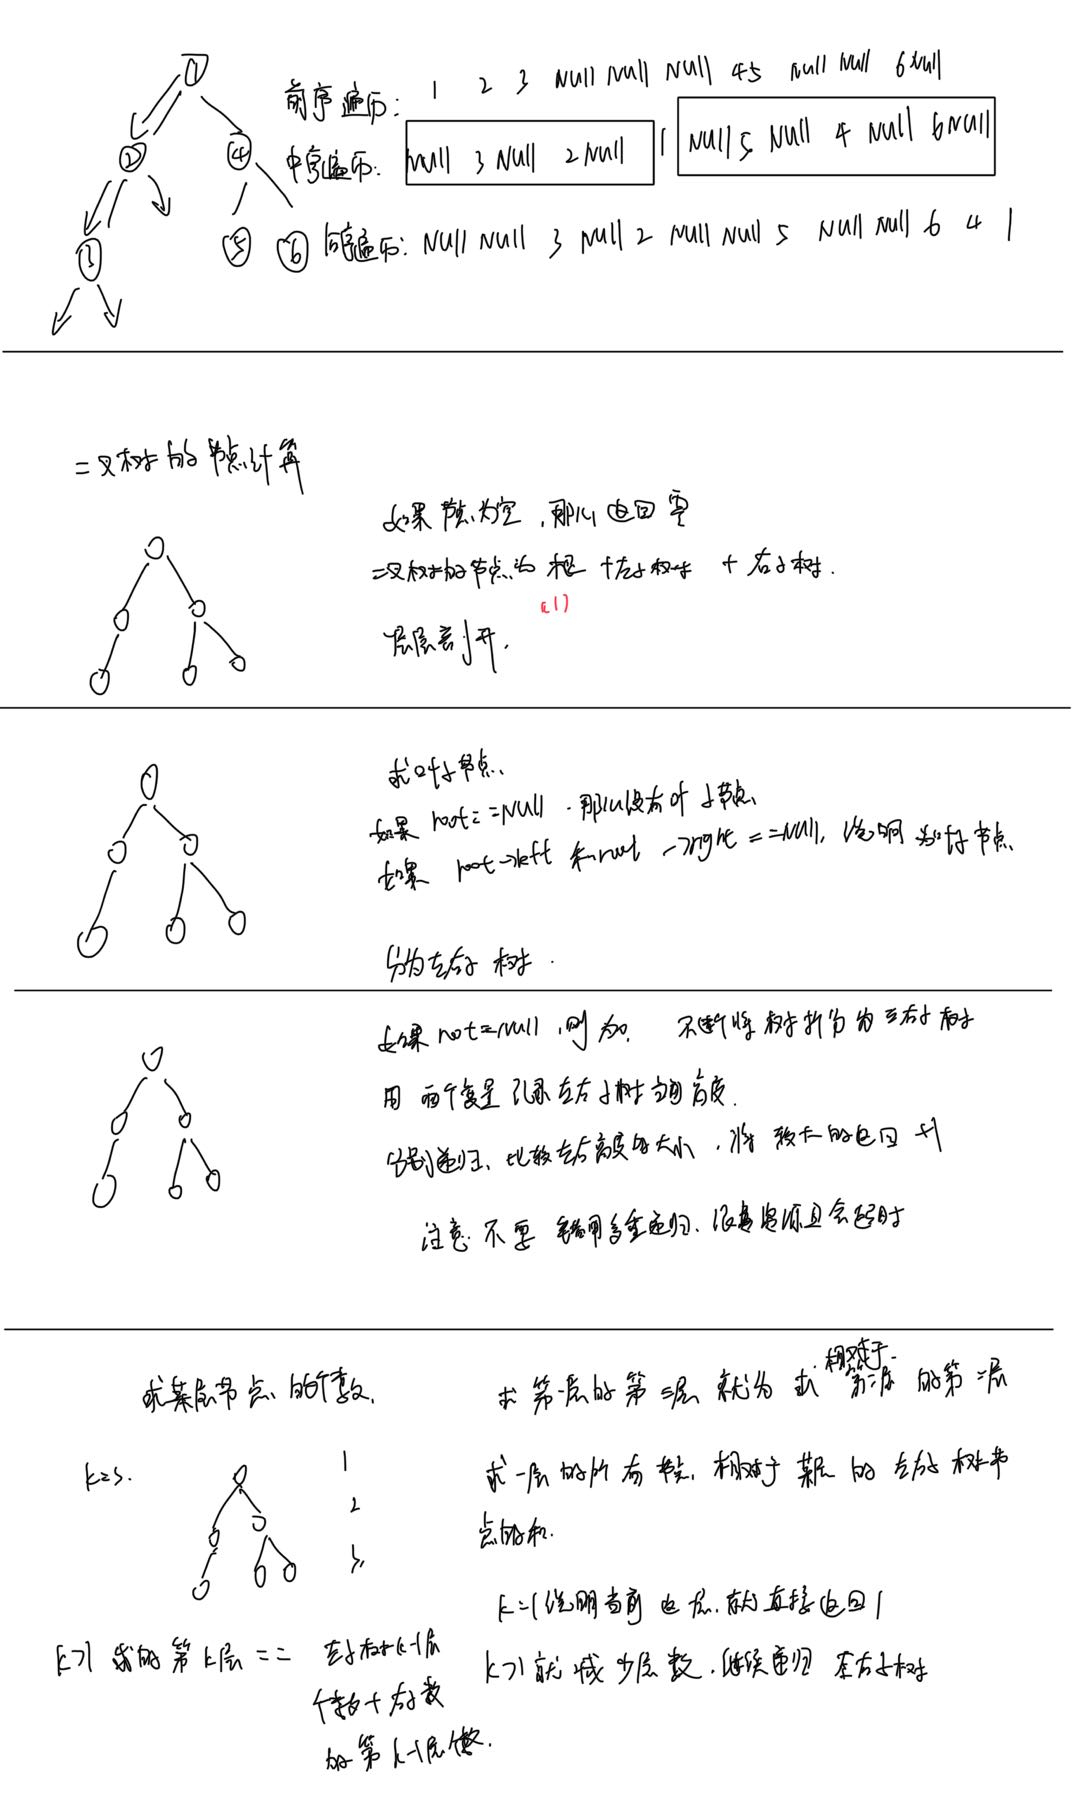 前序遍历: 1 2 3 Null Null Null 4 5 Null Null 6 Null
中序遍历: Null 3 Null 2 Null 1 Null 5 Null 4 Null 6 Null
后序遍历: Null Null 3 Null 2 Null Null 5 Null Null 6 4 1
1
2 4
3 5 6
二叉树的节点计算
如果节点为空,那么返回零
二叉树的节点为 根 +左子树 + 右子树.
(1)
层层剥开.
求叶子节点.
如果 root==Null .那么没有叶子节点.
如果 root->left 和 root ->right ==Null, 说明为叶子节点.
分为左右子树.
如果 root=Null ,则为0. 不断将树拆分为左右子树
用 两个变量记录左右子树的高度.
分别递归、比较左右高度的大小,将 较大的返回 +1
注意:不要 多重递归、很 且会超时
求某层节点的个数.
k=3.
1
2
3.
k>1 求的第k层 == 左子树k-1层
个数+右子数
的第k-1层个数.
相对于
求 第一层的 第三层 就为 求 第二层 的第二层
求一层的所有节点, 相对于 某层 的 左右子树节
点的和.
k=1说明当前这层.就直接返回1
k>1 就减少层数,继续递归 左右子树